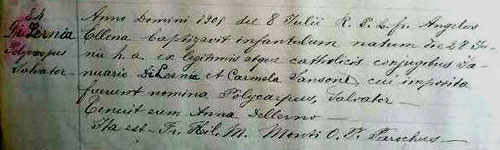 24
DiLernia
Polycarpus
Salvator
Anno Domini 1901 die 8 Julii R. P. L. fr. Angelus
Ellena baptizavit infantulum natum die 28 Ju-
nii h. a. ex legitimis atque catholicis conjugibus Ja-
nuario DiLernia et Carmela Sansone, cui imposita
fuerunt nomina Polycarpus, Salvator
Tenuit eum Anna Dellerno
Ita est - Fr. Hil. M. Monti O. P. Parochus